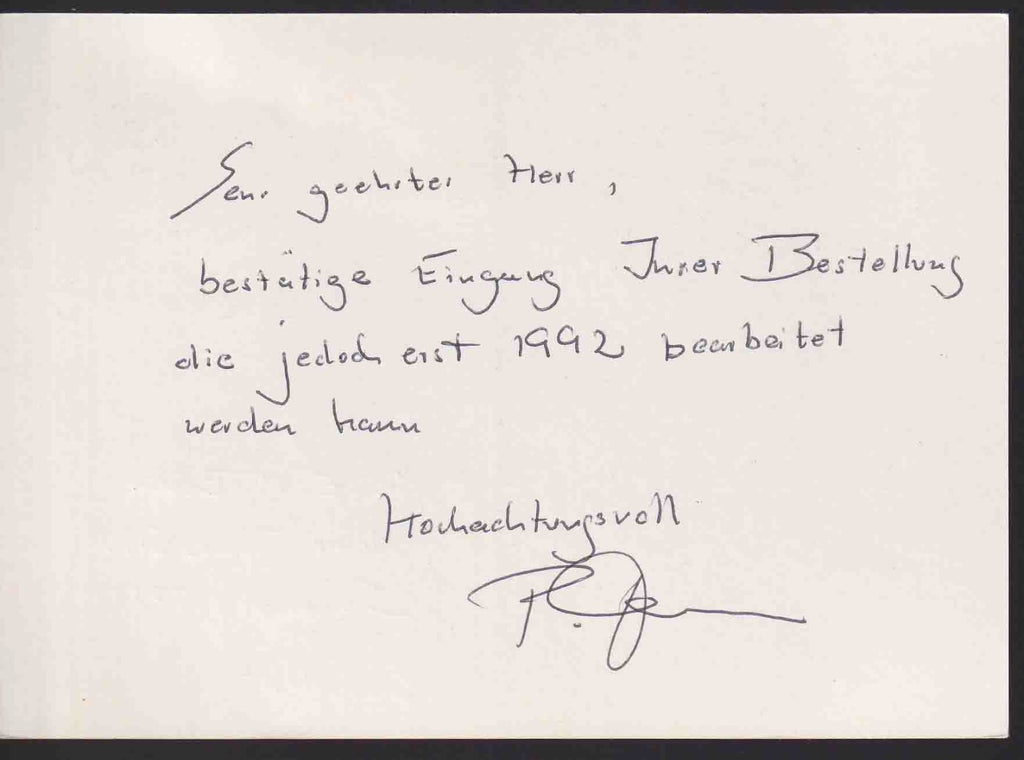 Sehr geehrter Herr,
bestätige Eingang Ihrer Bestellung
die jedoch erst 1992 bearbeitet
werden kann
Hochachtungsvoll